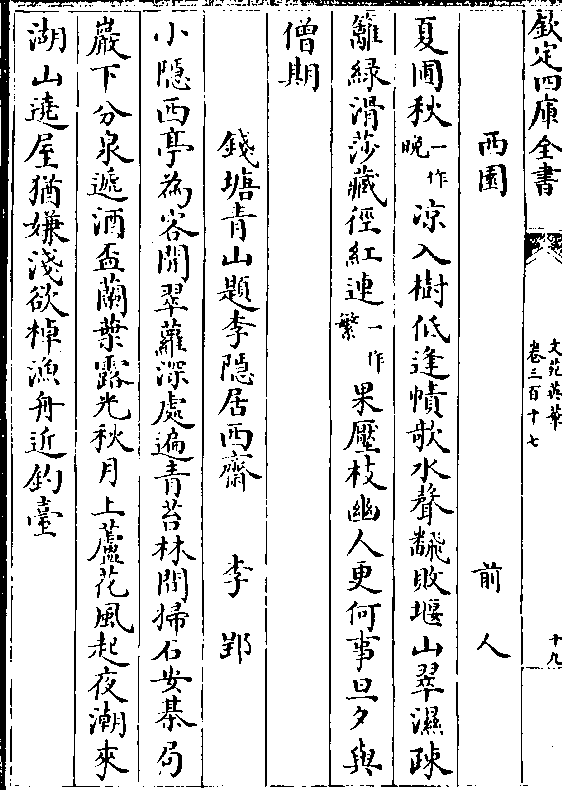 欽定四庫全書
文苑英華
卷三百十七
十九
西園 前人
夏圃秋一作晚凉入樹低逢幘欹水聲翻敗堰山翠濕疎
籬緑滑莎藏徑紅連一作繁果壓枝幽人更何事旦夕與
僧期
錢塘青山題李隠居西齋 李郢
小隠西亭為客開翠蘿深處遍青苔林間掃石安棊局
巖下分泉遞酒盃蘭葉露光秋月上蘆花風起夜潮來
湖山遶屋猶嫌淺欲棹漁舟近釣臺